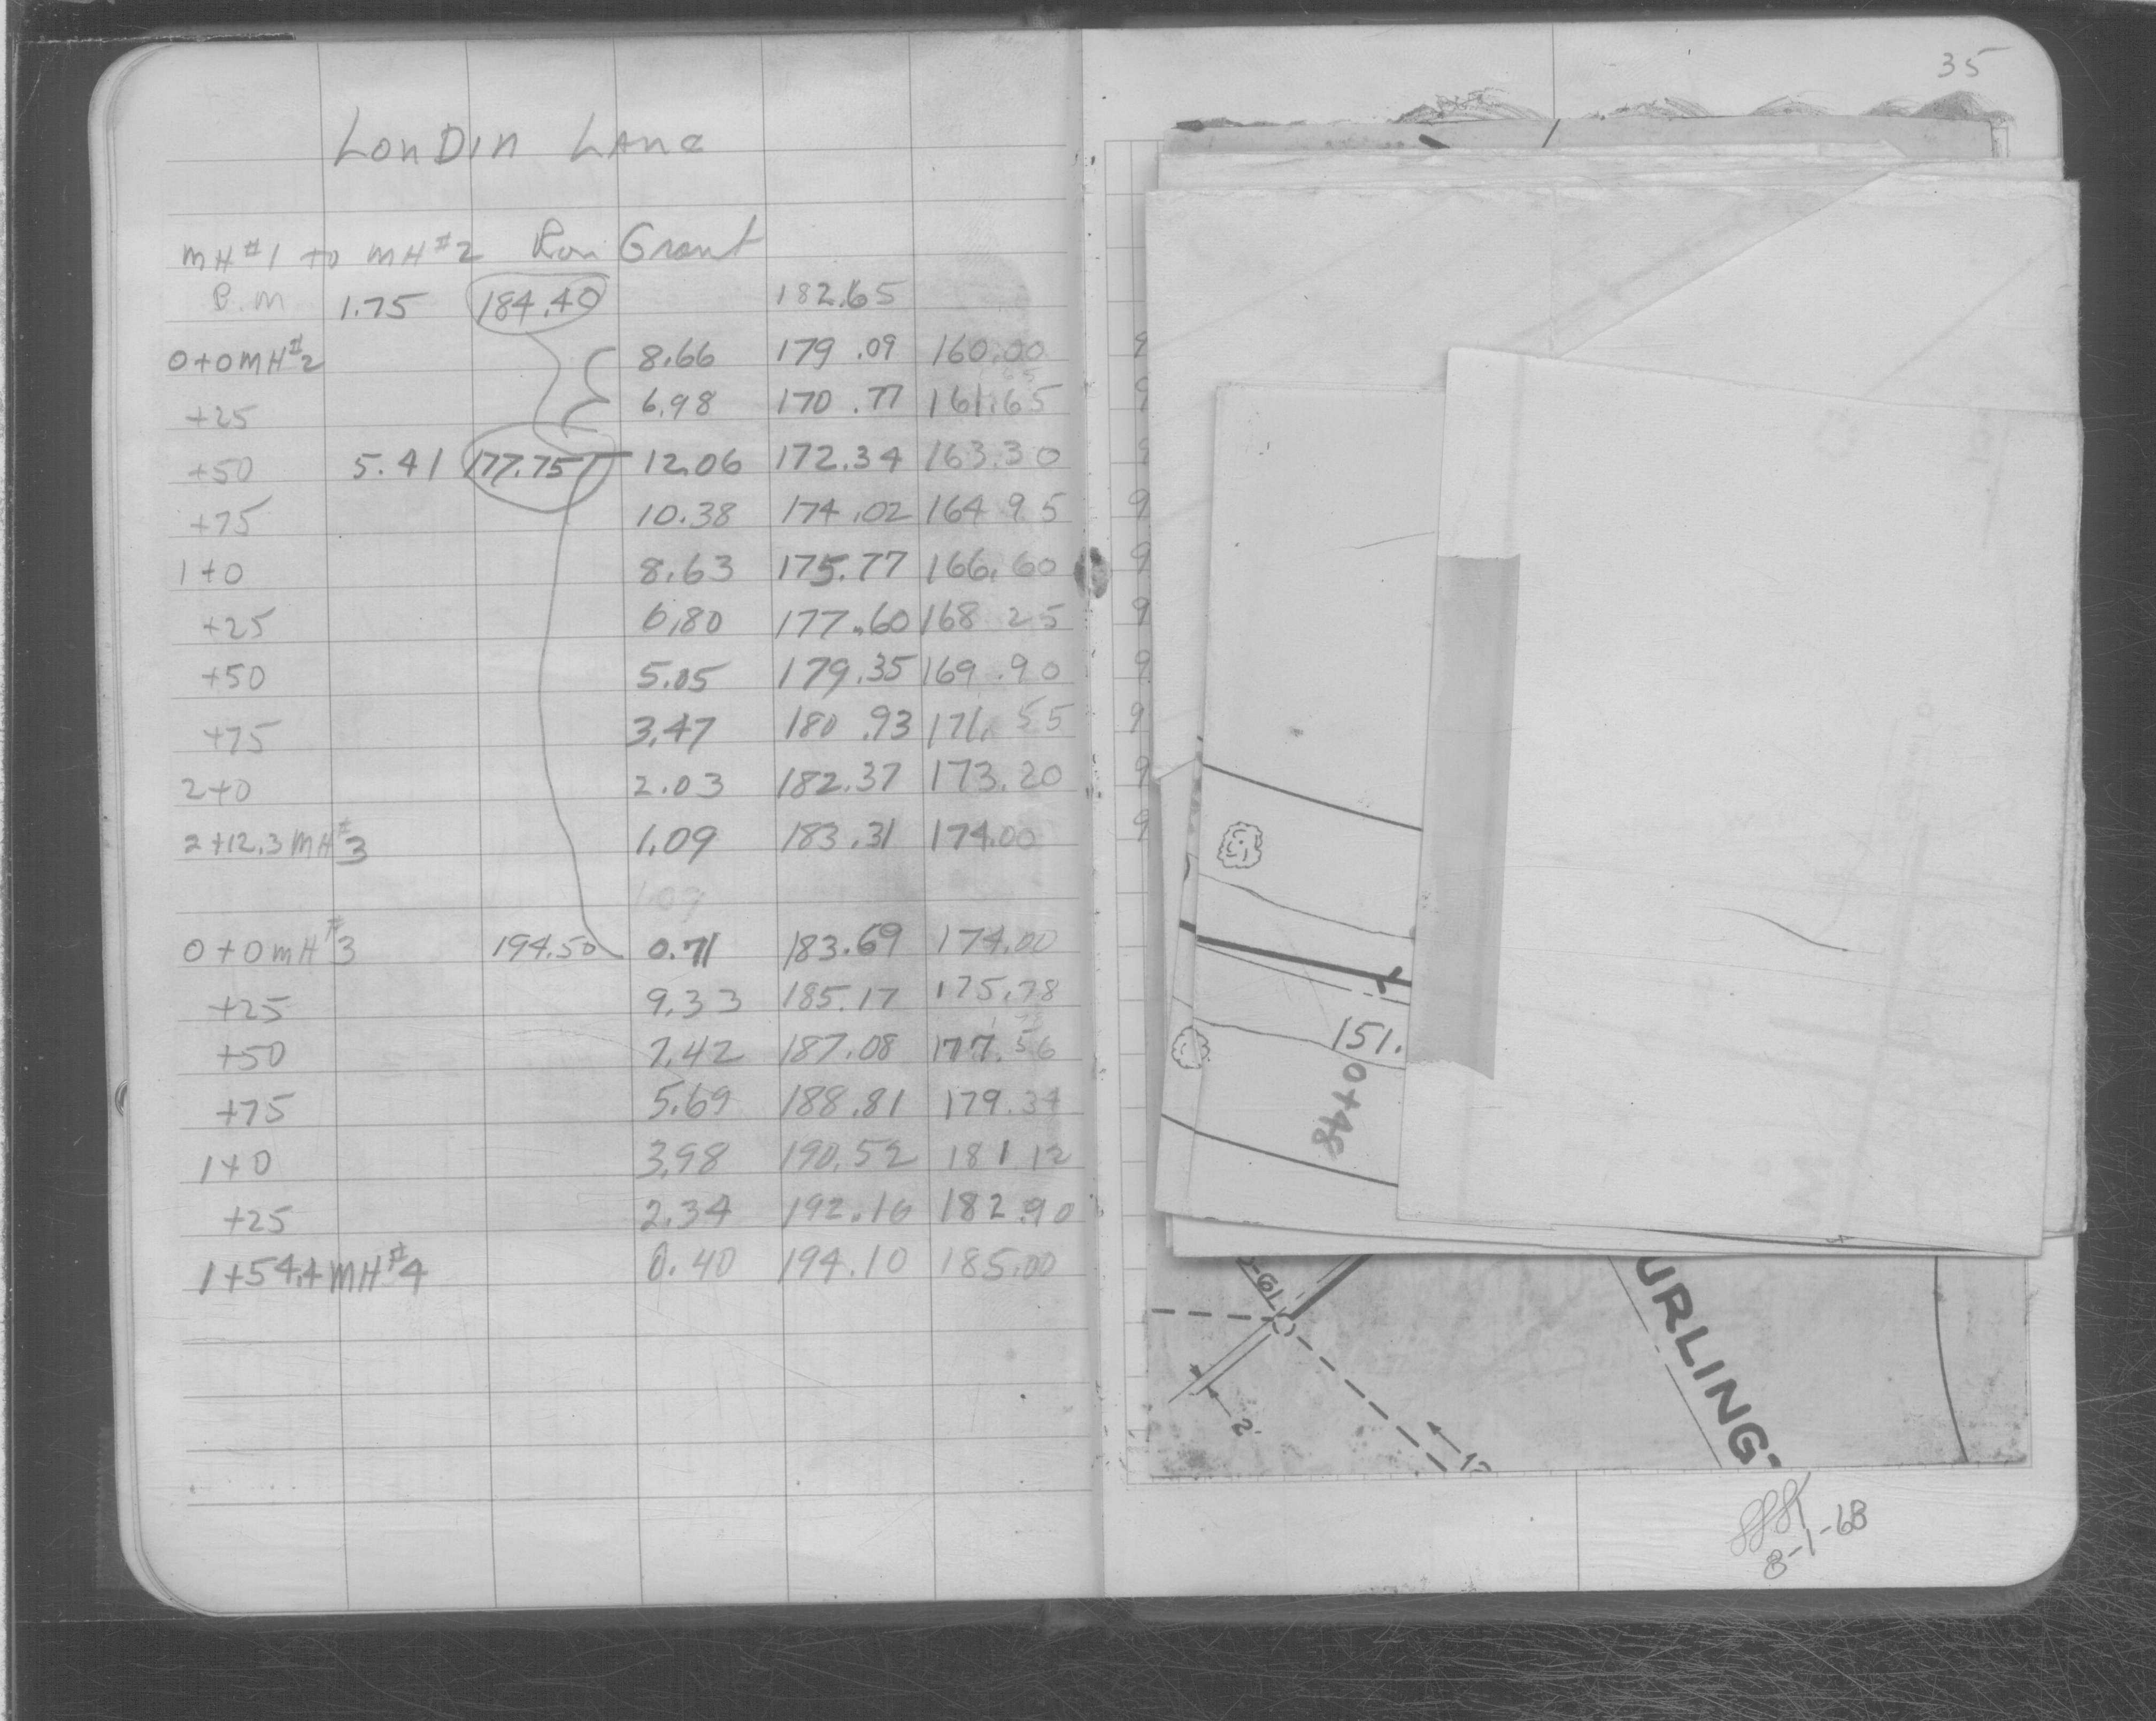 LonDin LAne
MH #1 to MH #2 Ron Grant
B.M 1.75 184.40 182.65
0+0 MH #2 8.66 179.09 160.00
+25 6.98 170.77 161.65
+50 5.41 177.75 12.06 172.34 163.30
+75 10.38 174.02 164.95
1+0 8.63 175.77 166.60
+25 6.80 177.60 168.25
+50 5.05 179.35 169.90
+75 3.47 180.93 171.55
2+0 2.03 182.37 173.20
2+12.3 MH #3 1.09 183.31 174.00
1.09
0+0 MH #3 194.50 0.71 183.69 174.00
+25 9.33 185.17 175.78
+50 7.42 187.08 177.56
+75 5.69 188.81 179.34
1+0 3.98 190.52 181.12
+25 2.34 192.16 182.90
1+54.4 MH #4 0.40 194.10 185.00
35
9
9
9
9
9
9
9
9
9
9
151.
0+48
URLING
2'
8-1-68